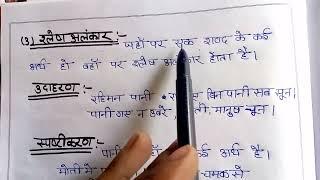 (3) श्लेष अलंकार :-
जहाँ पर एक शब्द के कई
अर्थ हो वहाँ पर श्लेष अलंकार होता है।
उदाहरण :-
रहिमन पानी बिन पानी सब सून।
पानी गए न उबरे, मानुष चून।
स्पष्टीकरण :-
पानी कई अर्थ है।
मोती में चमक से